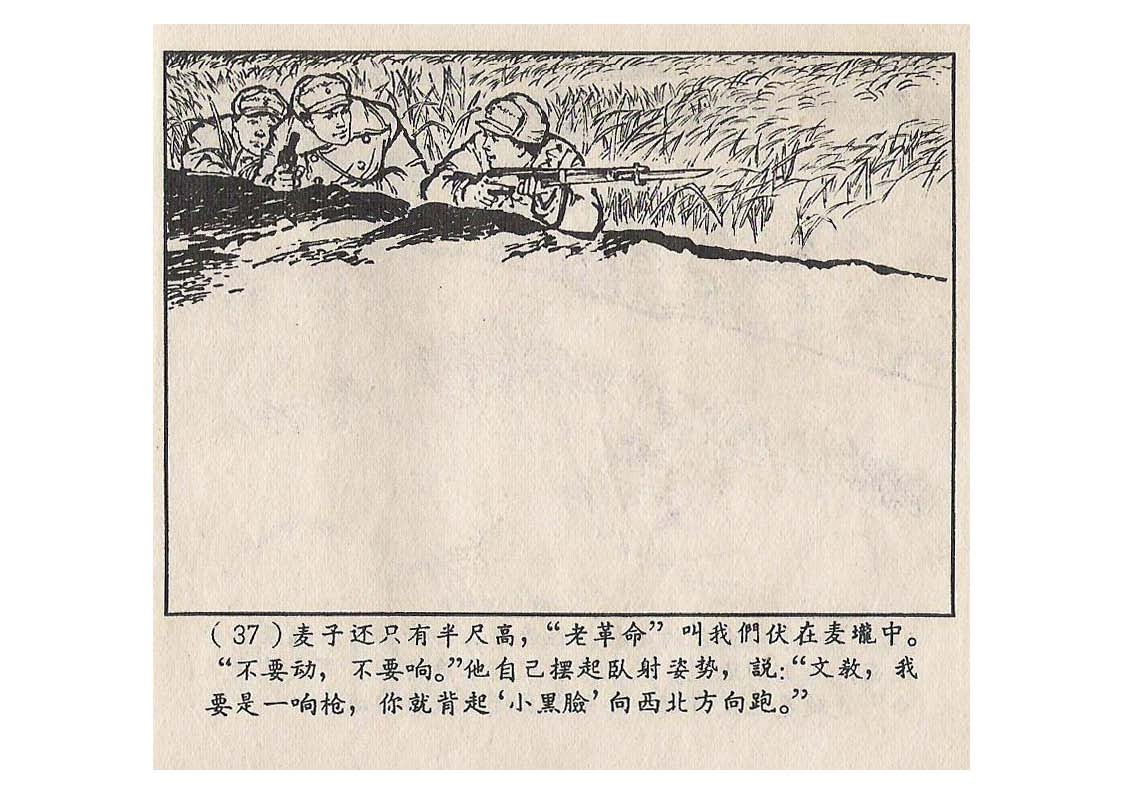 (37)麦子还只有半尺高，“老革命”叫我們伏在麦壠中。
“不要动，不要响。”他自己摆起臥射姿势，説：“文教，我
要是一响枪，你就背起‘小黑臉’向西北方向跑。”